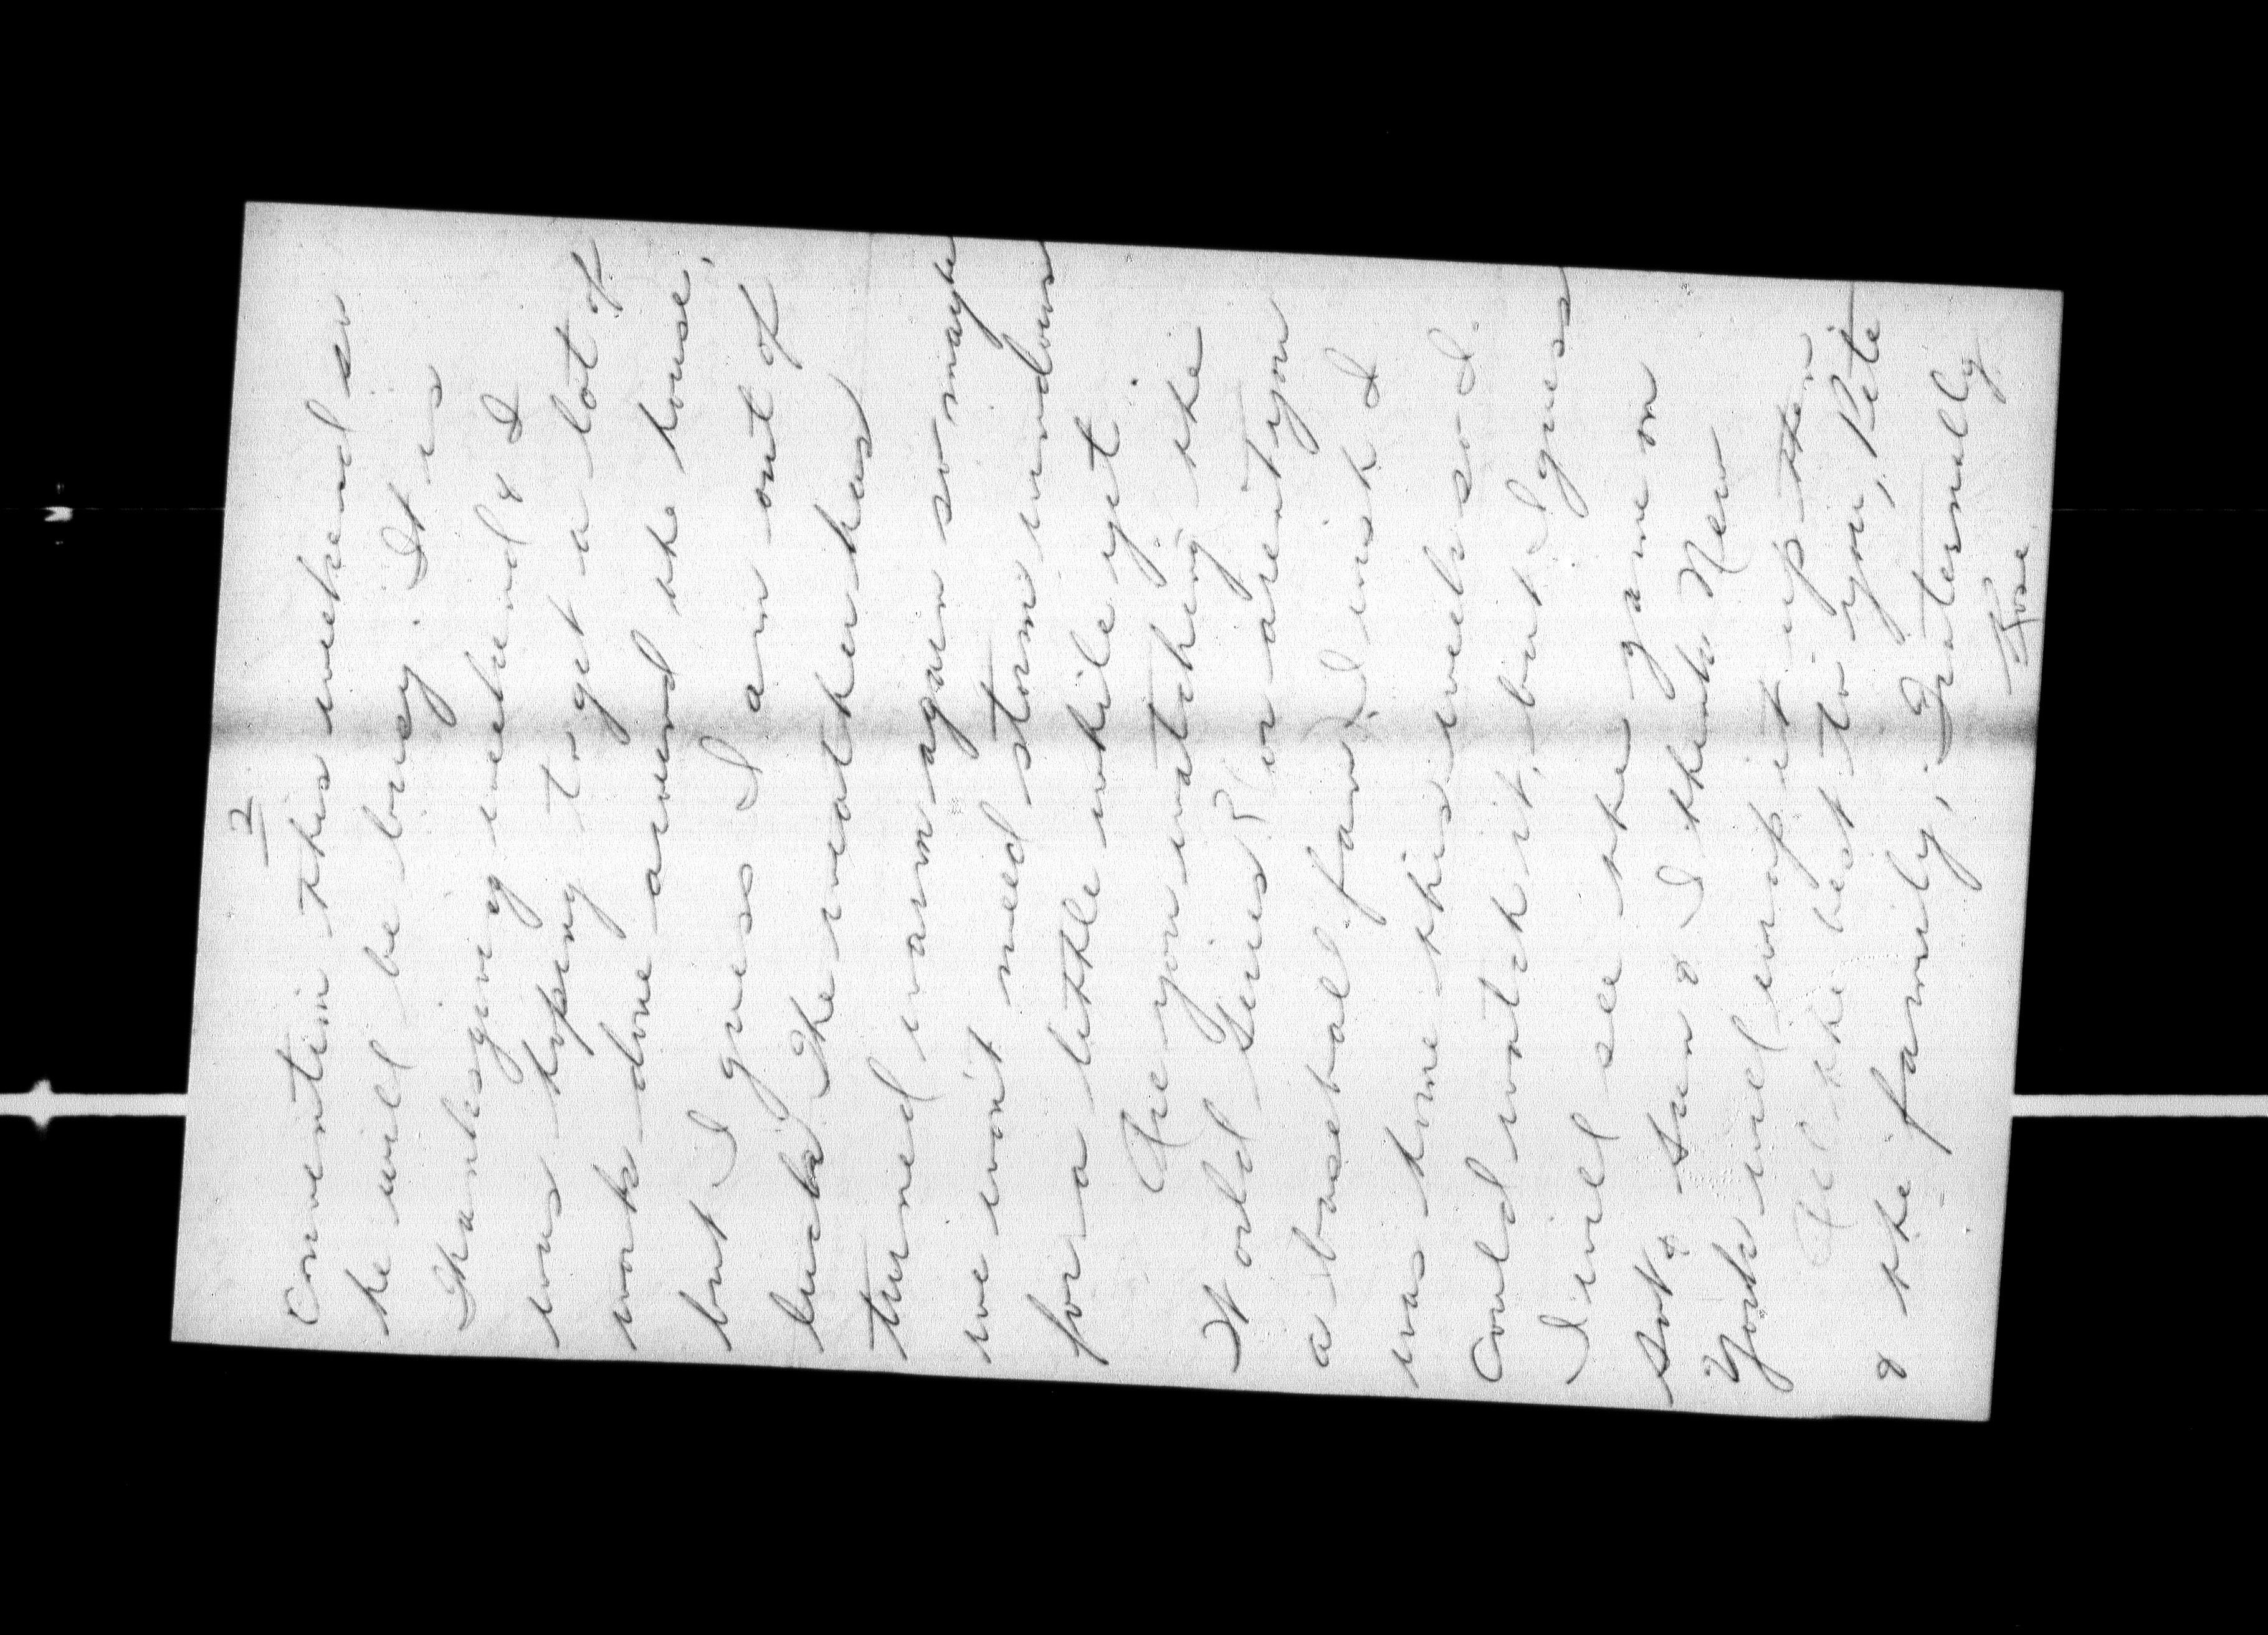 2
Convention this weekend so
he will be busy. It is
Thanksgiving weekend & I
was hoping to get a lot of
work done around the house,
but I guess I am out of
luck. The weather has
turned warm again so maybe
we won't need storm windows
for a little while yet.
Are you watching the
World Series? or aren't you
a baseball fan. I wish I
was home this week so I
could watch it, but I guess
I will see the game on
Sat & Sun & I think New
York will wrap it up then
All the best to you, Pete
& the family, Fraternally
Rose